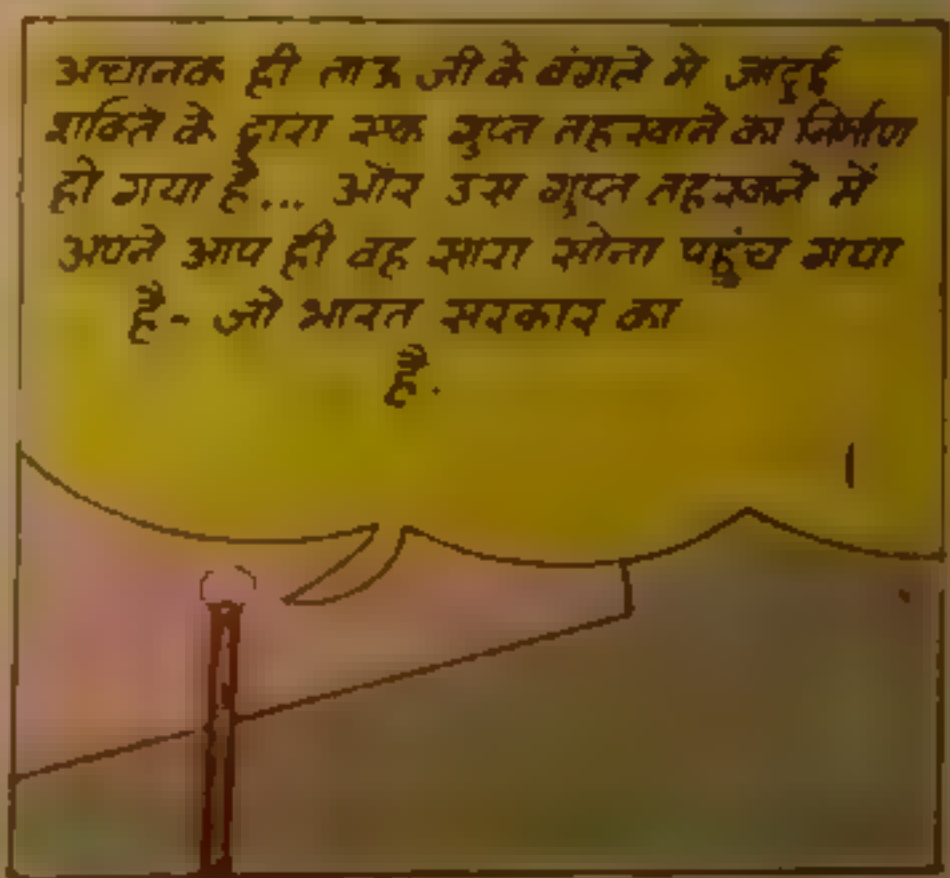 अचानक ही ताऊ जी के बंगले मे जादुई
शक्ति के द्वारा एक गुप्त तहखाने का निर्माण
हो गया है... और उस गुप्त तहखाने में
अपने आप ही वह सारा सोना पहुंच गया
है- जो भारत सरकार का
है.